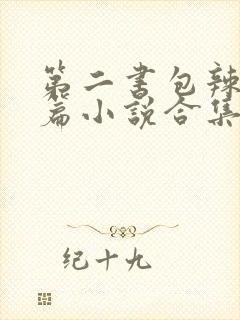 第二书包辣
篇小说合集
纪十九